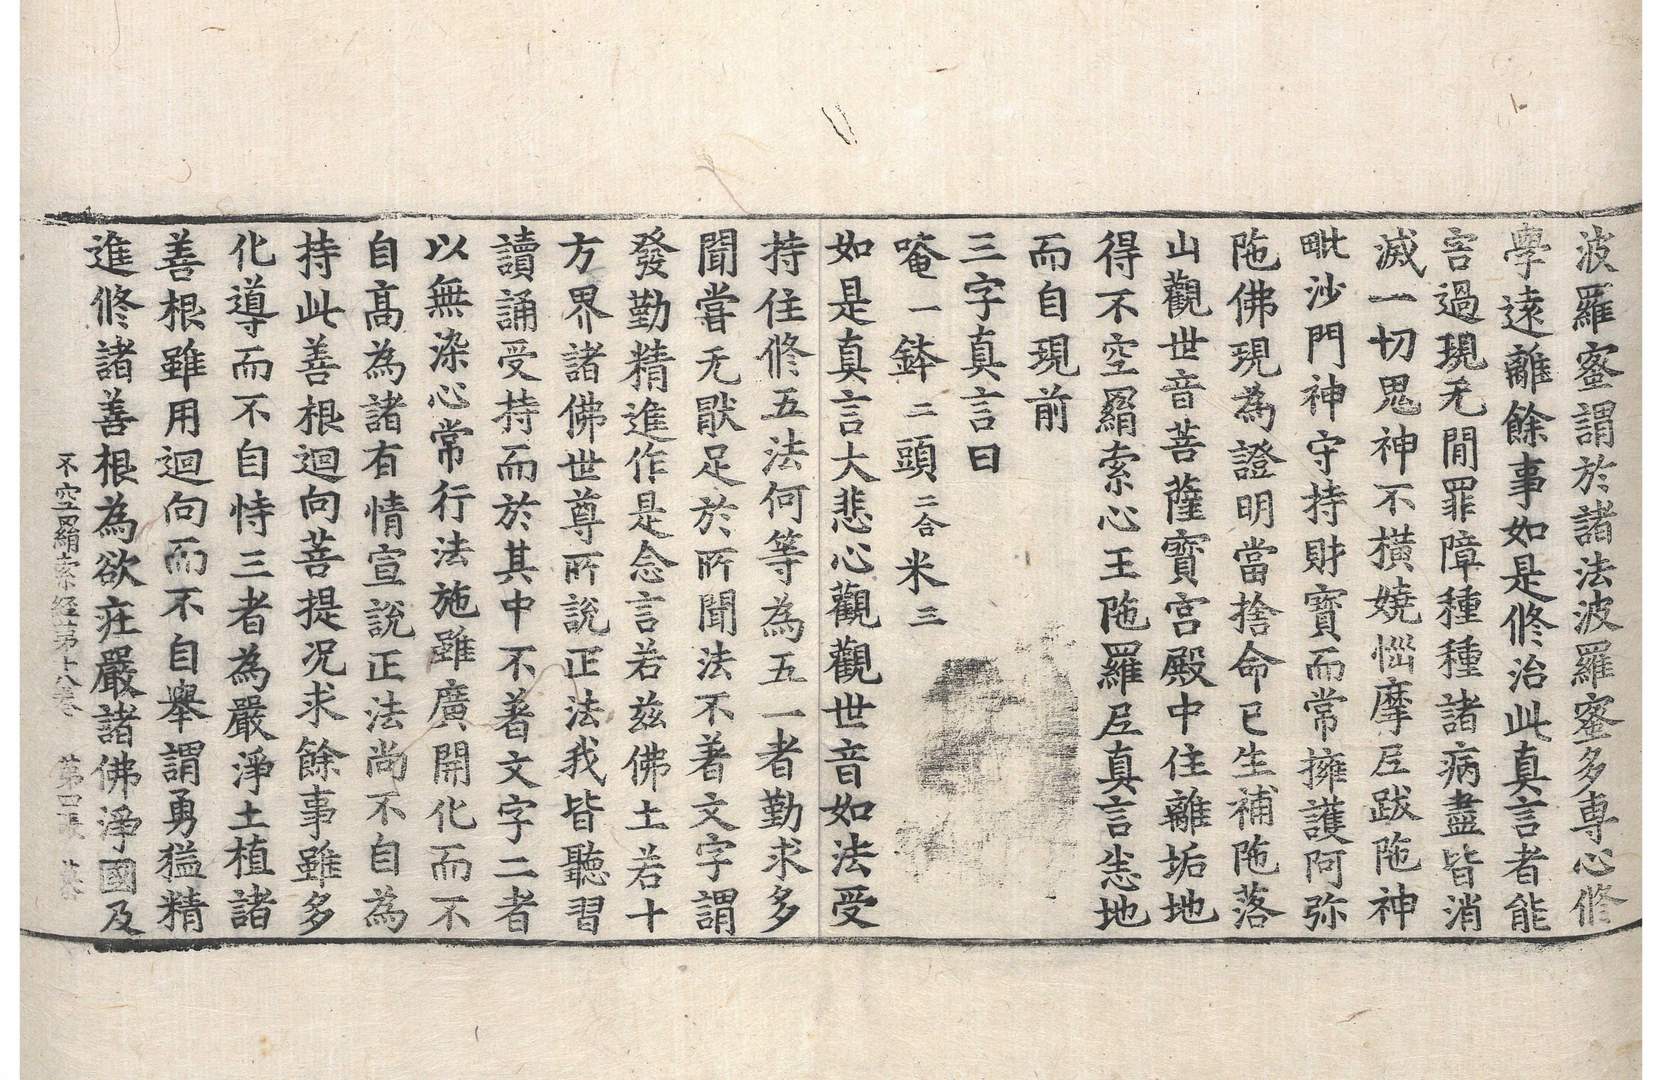 波羅蜜謂於諸法波羅蜜多専心修
學遠離餘事如是修治此真言者能
害過現无閒罪障種種諸病盡皆消
滅一切鬼神不橫嬈惱摩𡰱跋陁神
毗沙門神守持財寶而常擁護阿弥
陁佛現為證明當捨命已生補陁落
山觀世音菩薩寶宮殿中住離垢地
得不空羂索心王陁羅𡰱真言恙地
而自現前
三字真言曰
唵一鉢二頭二合米三
如是真言大悲心觀觀世音如法受
持住修五法何等為五一者勤求多
聞嘗无猒足於所聞法不著文字謂
發勤精進作是念言若兹佛土若十
方界諸佛世尊所說正法我皆聽習
讀誦受持而於其中不著文字二者
以無染心常行法施雖廣開化而不
自高為諸有情宣說正法尚不自為
持此善根迴向菩提况求餘事雖多
化導而不自恃三者為嚴淨土植諸
善根雖用迴向而不自舉謂勇猛精
進修諸善根為欲疘嚴諸佛淨國及
不空羂索経第十八卷 第四張